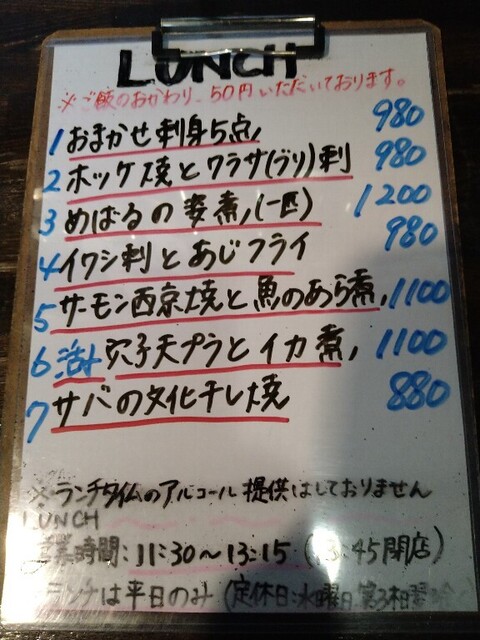 LUNCH
※ご飯のおかわり、50円いただいております。
1 おまかせ刺身5点、 980
2 ホッケ焼とワラサ(ブリ)刺 980
3 めばるの姿煮、(一匹) 1200
4 イワシ刺とあじフライ 980
5 サーモン西京焼と魚のあら煮、1100
6 活〆穴子天プラとイカ煮、1100
7 サバの 焼 880
※ランチタイムのアルコール提供はしておりません
LUNCH
営業時間:11:30〜13:15 (13:45閉店)
ランチは平日のみ (定休日:水曜日